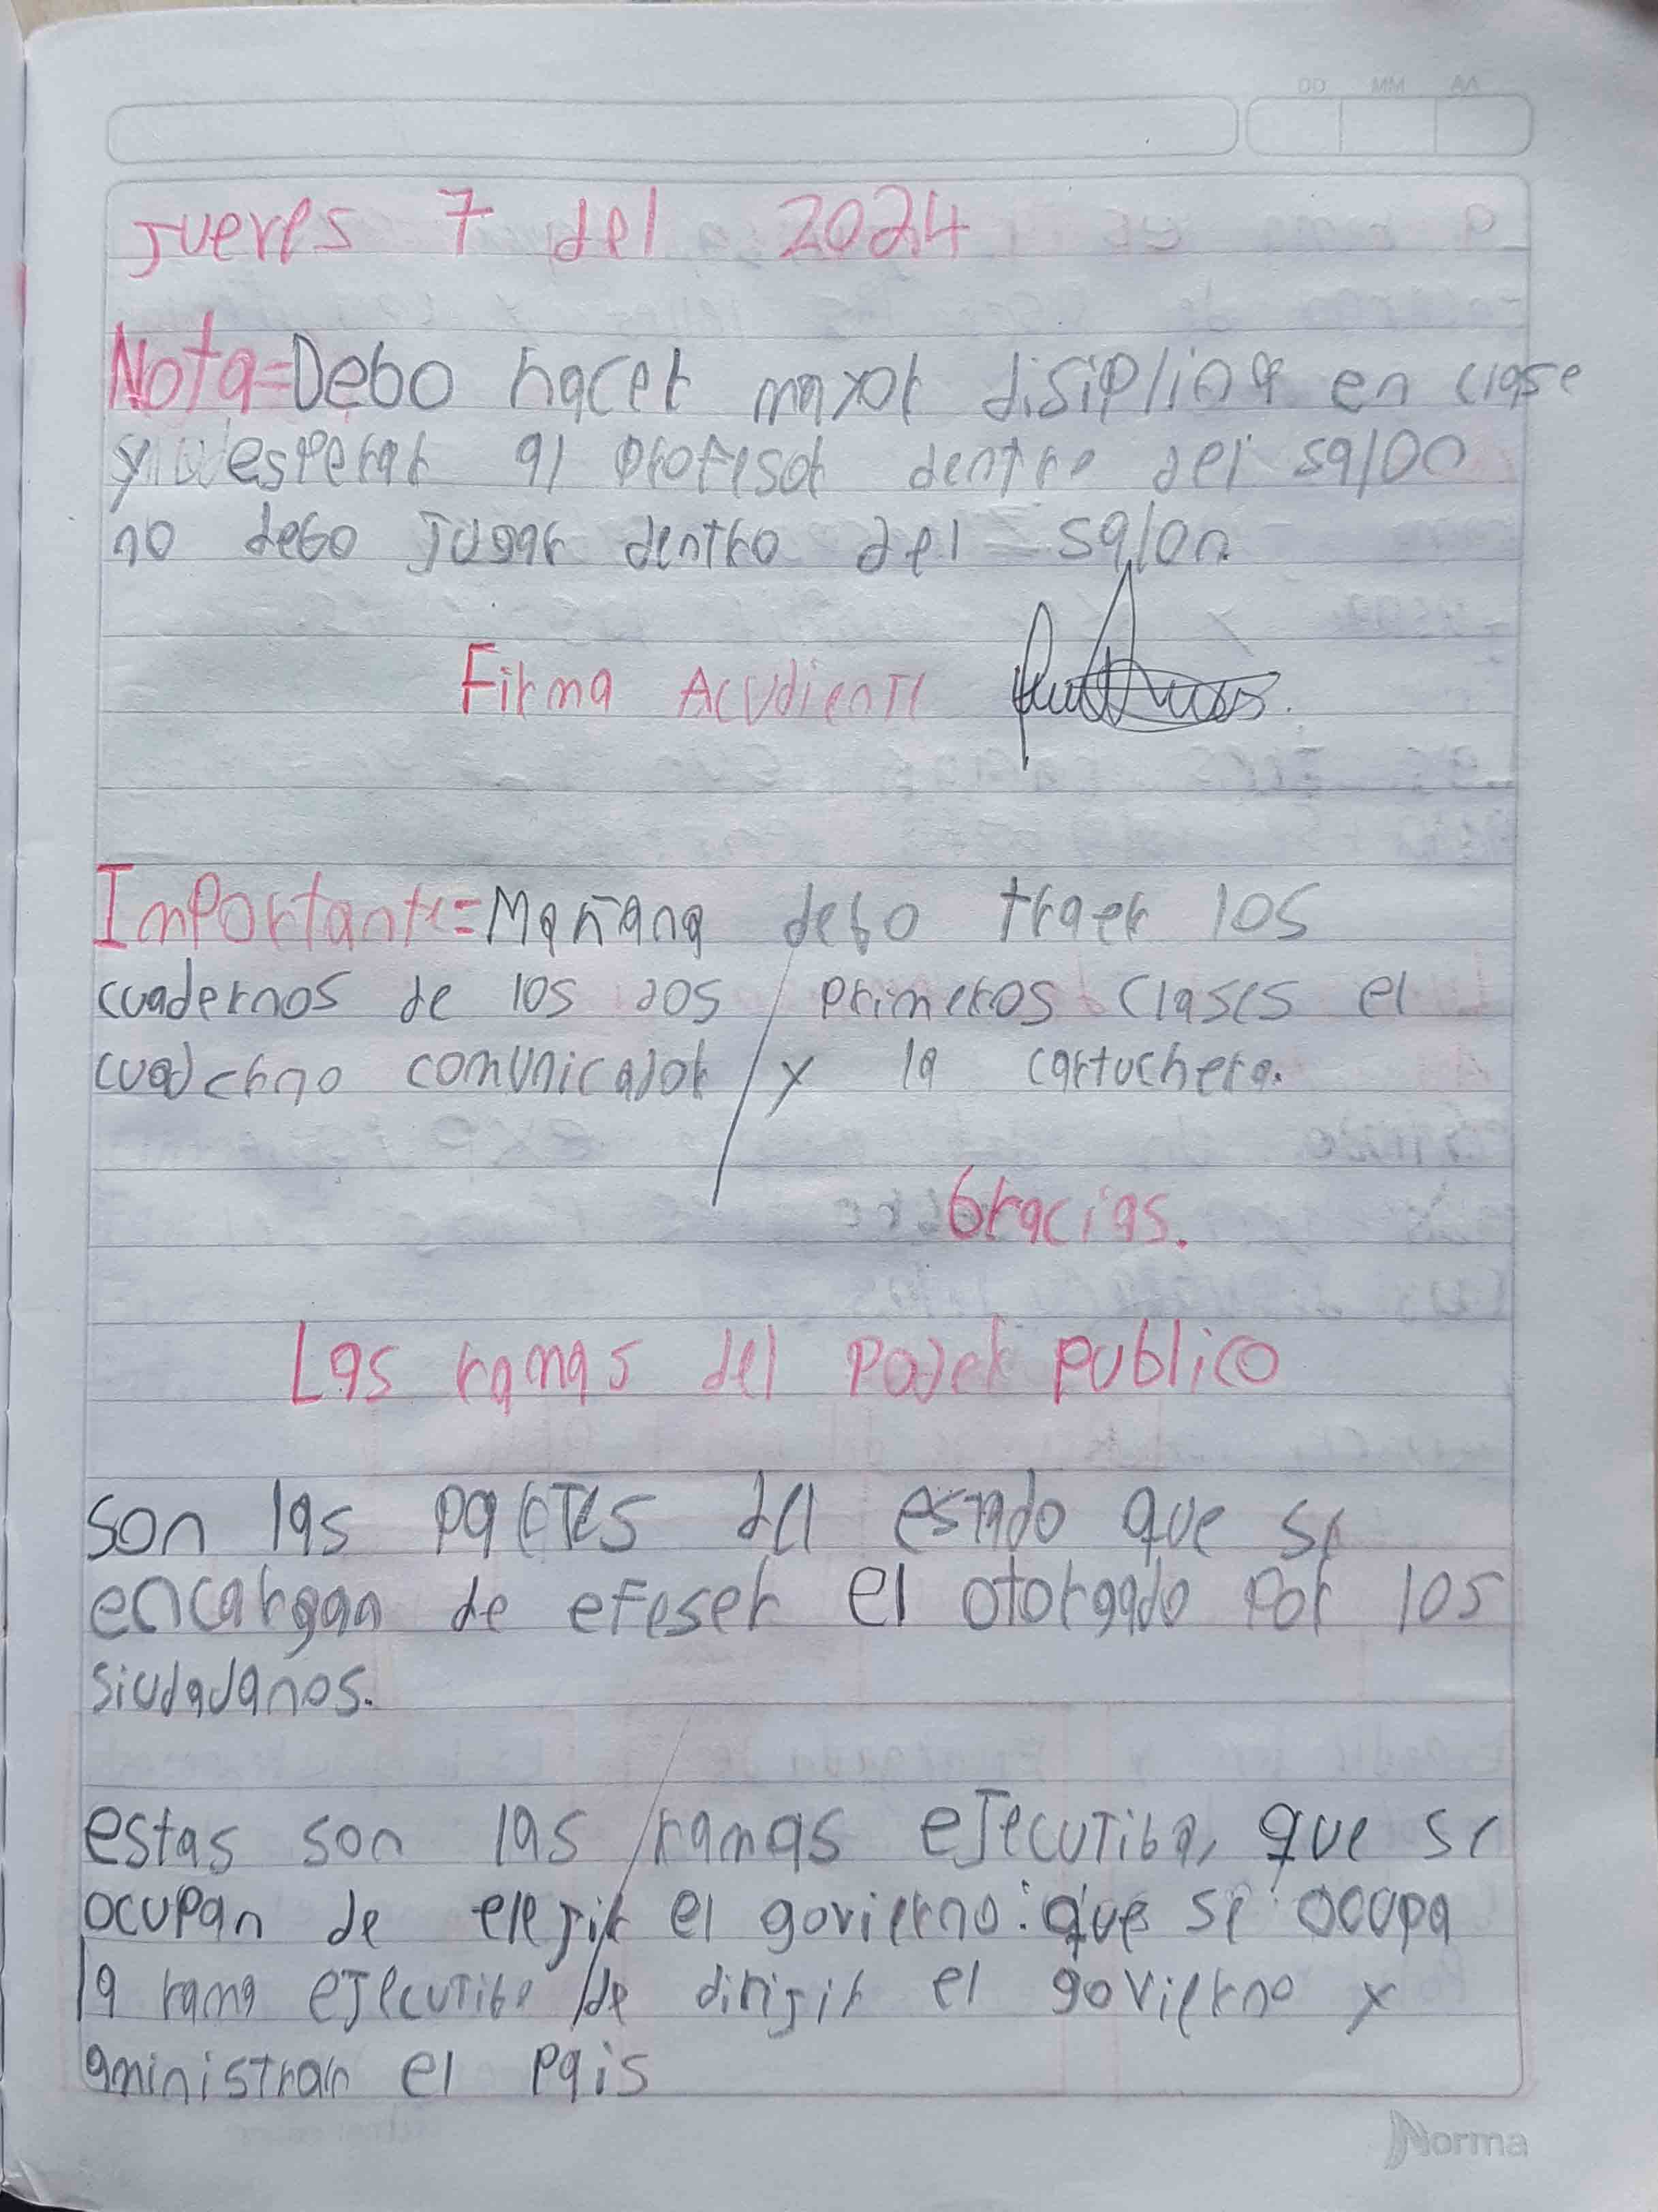 Jueves 7 del 2024
Nota=Debo hacer mayor disiplina en clase
y esperar al profesor dentro del salon
no debo Jugar dentro del salon.
Firma Acudiente
Importante=Mañana debo traer los
cuadernos de los dos primeros clases el
cuaderno comunicador y la cartuchera.
Gracias.
Las ramas del Poder publico
son las partes del estado que se
encargan de efeser el otorgado por los
siudadanos.
estas son las ramas eJecutiba, que se
ocupan de eleJir el govierno: que se ocupa
la rama eJecutiba de dirijir el govierno y
aministran el Pais
Norma